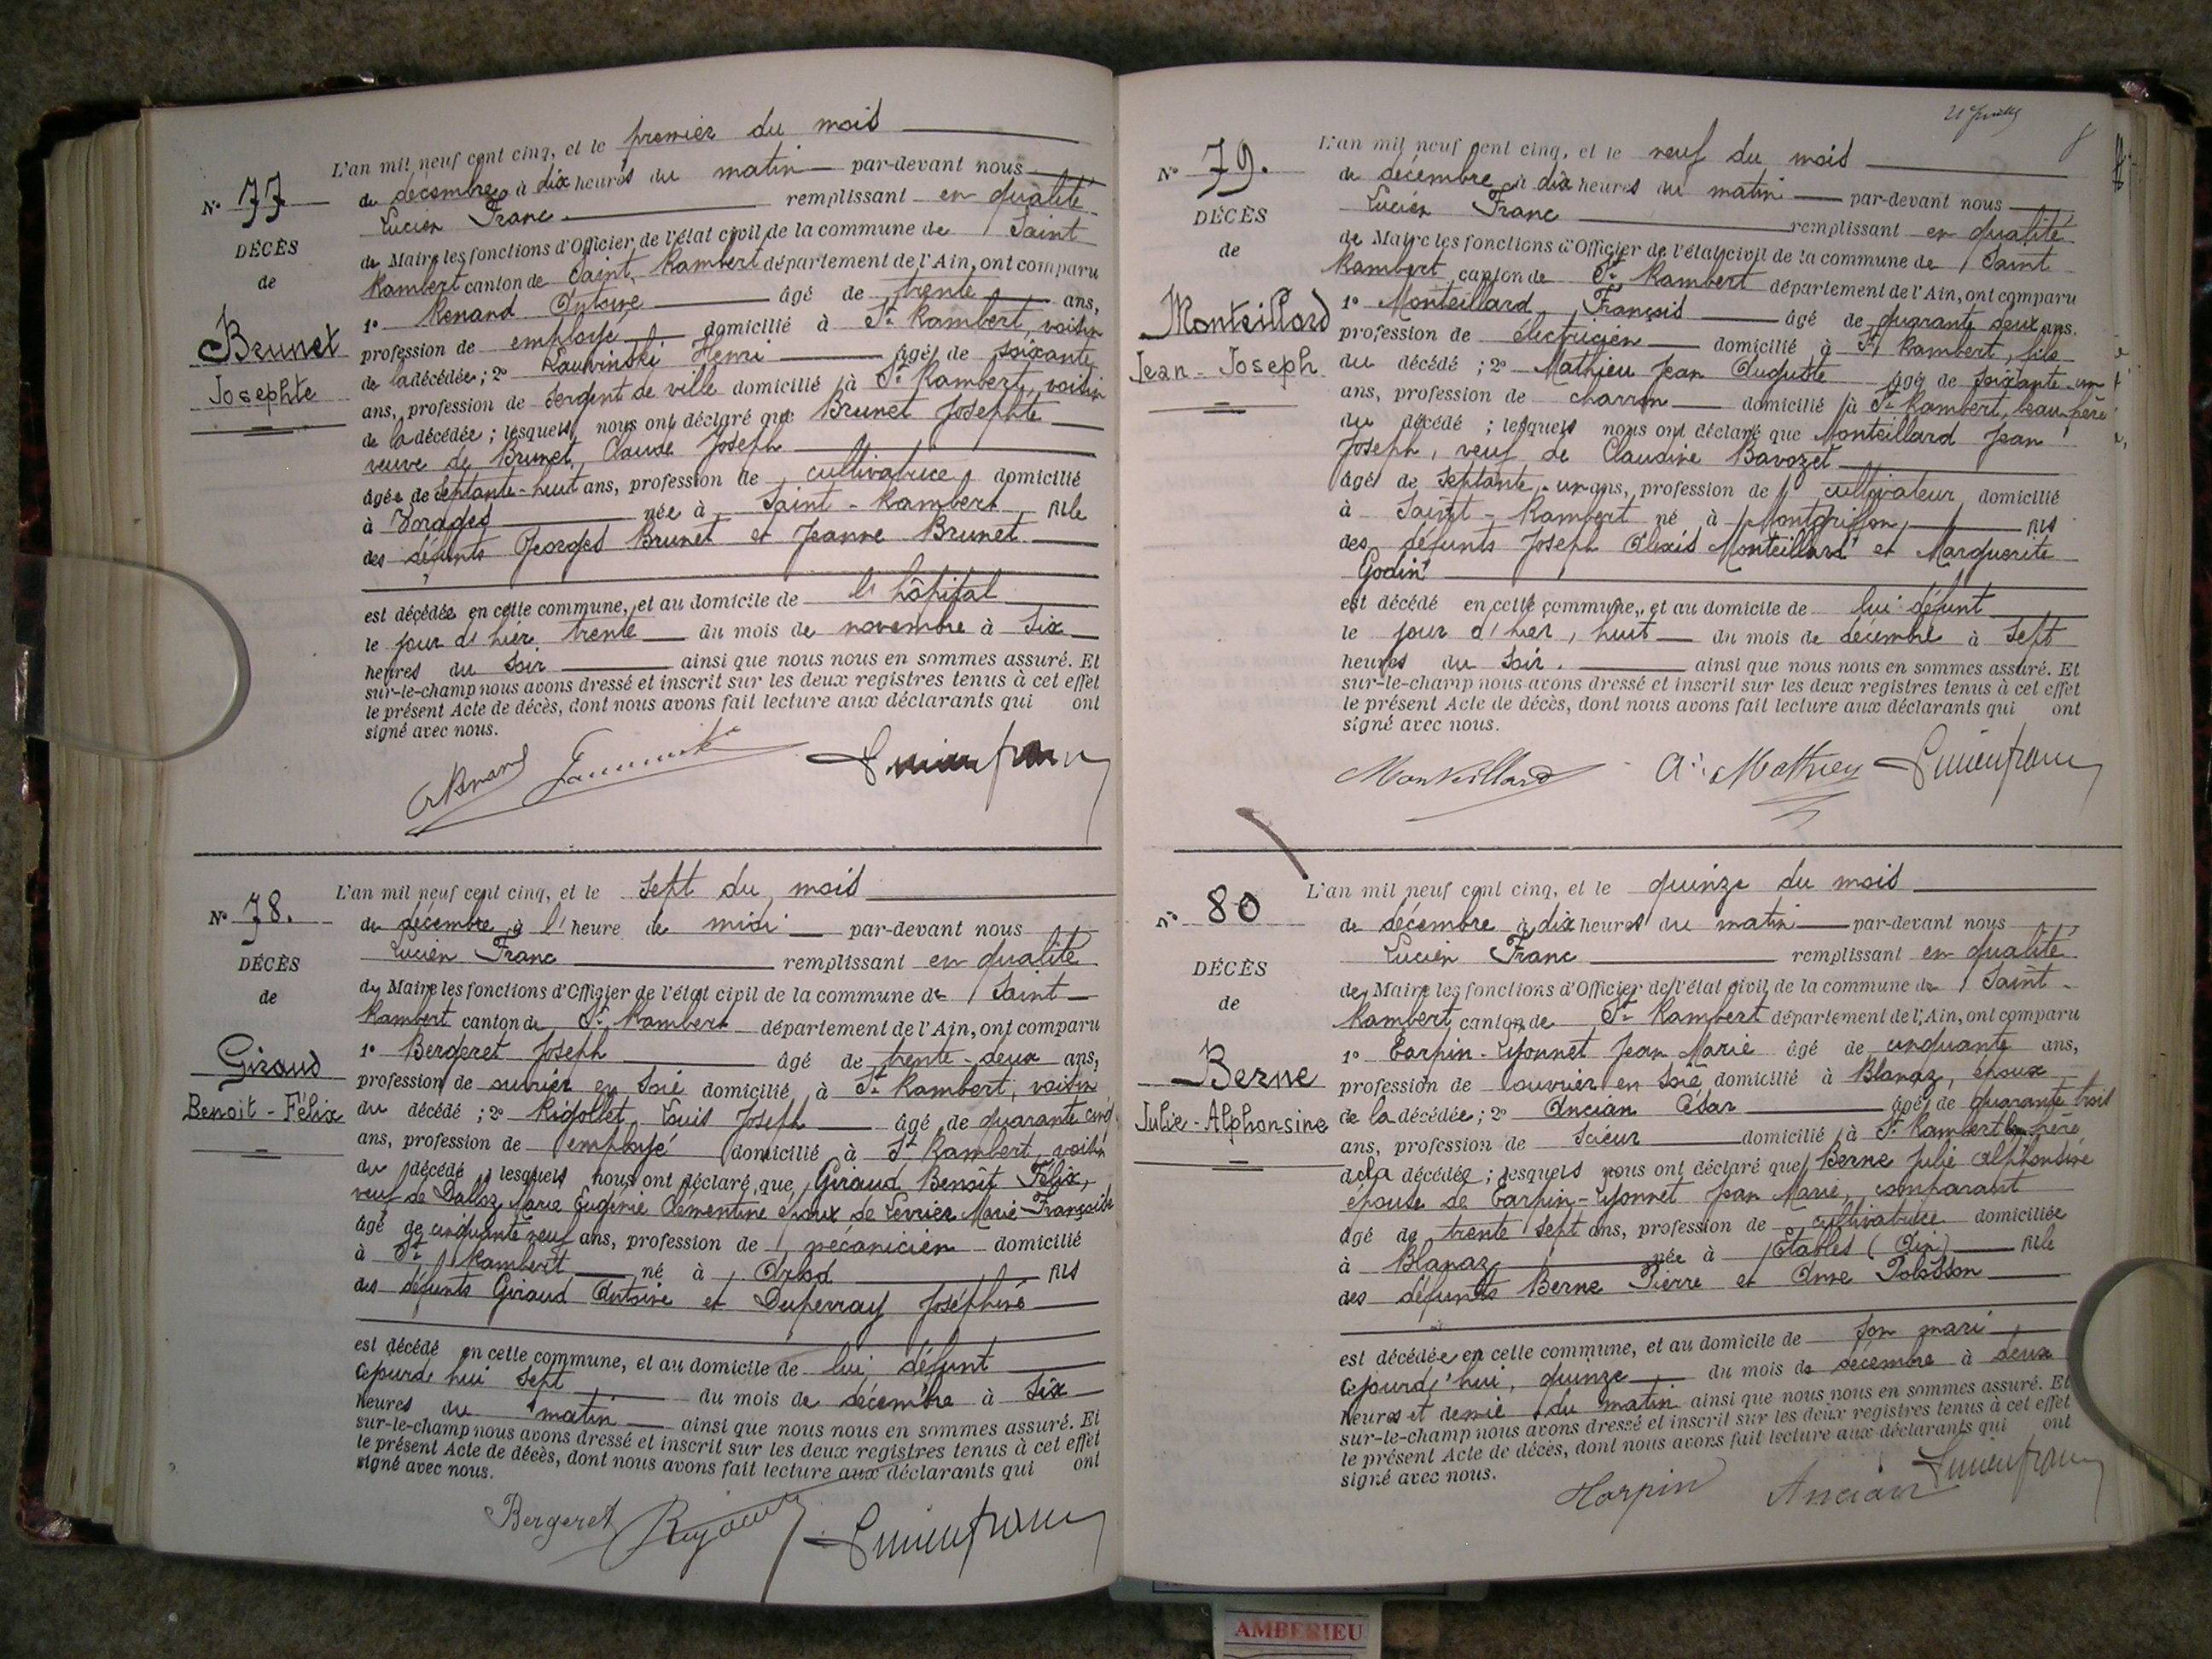 L'an mil neuf cent cinq, et le premier du mois
N° 77
de décembre à dix heures du matin par-devant nous
Lucien Franc remplissant en qualité
DÉCÈS
de Maire les fonctions d'Officier de l'état civil de la commune de Saint
de
Rambert canton de Saint Rambert département de l'Ain, ont comparu
1° Renand Antoine âgé de trente ans,
Brunet
profession de employé domicilié à St Rambert, voisin
Josephte
de la décédée; 2° Henri âgé de soixante
ans, profession de sergent de ville domicilié à St Rambert, voisin
de la décédée; lesquels nous ont déclaré que Brunet Josephte
veuve de Brunet, Claude Joseph
âgée de septante-huit ans, profession de cultivatrice domicilié
à Vorages née à Saint-Rambert fille
des défunts Georges Brunet et Jeanne Brunet
est décédée en cette commune, et au domicile de l'hôpital
le jour d'hier, trente du mois de novembre à six
heures du soir ainsi que nous nous en sommes assuré. Et
sur-le-champ nous avons dressé et inscrit sur les deux registres tenus à cet effet
le présent Acte de décès, dont nous avons fait lecture aux déclarants qui ont
signé avec nous.
Lucien franc
L'an mil neuf cent cinq, et le sept du mois
N° 78.
de décembre à l'heure de midi par-devant nous
Lucien Franc remplissant en qualité
DÉCÈS
de Maire les fonctions d'Officier de l'état civil de la commune de Saint
de
Rambert canton de St Rambert département de l'Ain, ont comparu
1° Bergeret Joseph âgé de trente-deux ans,
Giraud
profession de ouvrier en soie domicilié à St Rambert, voisin
Benoit-Félix
du décédé; 2° Rigollet Louis Joseph âgé de quarante cinq
ans, profession de employé domicilié à St Rambert, voisin
du décédé; lesquels nous ont déclaré que Giraud Benoît Félix,
veuf de Dalloz Marie Eugénie Clémentine époux de Levrier Marie-Françoise
âgé de cinquante neuf ans, profession de mécanicien domicilié
à St Rambert né à Arbod fils
des défunts Giraud Antoine et Duperray Joséphine
est décédé en cette commune, et au domicile de lui défunt
cejourd'hui sept du mois de décembre à six
heures du matin ainsi que nous nous en sommes assuré. Et
sur-le-champ nous avons dressé et inscrit sur les deux registres tenus à cet effet
le présent Acte de décès, dont nous avons fait lecture aux déclarants qui ont
signé avec nous.
Bergeret Lucien franc
L'an mil neuf cent cinq, et le neuf du mois
N° 79.
de décembre à dix heures du matin par-devant nous
Lucien Franc remplissant en qualité
DÉCÈS
de Maire les fonctions d'Officier de l'état civil de la commune de Saint
de
Rambert canton de St Rambert département de l'Ain, ont comparu
1° Monteillard François âgé de quarante deux ans.
Monteillard
profession de électricien domicilié à St Rambert, fils
Jean-Joseph
du décédé; 2° Mathieu Jean Auguste âgé de soixante-un
ans, profession de charron domicilié à St Rambert, beau-frère
du décédé; lesquels nous ont déclaré que Monteillard Jean
Joseph, veuf de Claudine Bavozet
âgé de septante-un ans, profession de cultivateur domicilié
à Saint-Rambert né à Montgriffon fils
des défunts Joseph Alexis Monteillard et Marguerite
Godin
est décédé en cette commune, et au domicile de lui défunt
le jour d'hier, huit du mois de décembre à sept
heures du soir. ainsi que nous nous en sommes assuré. Et
sur-le-champ nous avons dressé et inscrit sur les deux registres tenus à cet effet
le présent Acte de décès, dont nous avons fait lecture aux déclarants qui ont
signé avec nous.
Monteillard A. Mathieu Lucien franc
L'an mil neuf cent cinq, et le quinze du mois
N° 80
de décembre à dix heures du matin par-devant nous
Lucien Franc remplissant en qualité
DÉCÈS
de Maire les fonctions d'Officier de l'état civil de la commune de Saint-
de
Rambert canton de St Rambert département de l'Ain, ont comparu
1° Carpin-Lyonnet Jean Marie âgé de cinquante ans,
Berne
profession de ouvrier en soie domicilié à Blanaz, époux
Julie-Alphonsine
de la décédée; 2° Ancian César âgé de quarante trois
ans, profession de scieur domicilié à St Rambert frère
de la décédée; lesquels nous ont déclaré que Berne Julie Alphonsine
épouse de Carpin-Lyonnet Jean Marie, comparant
âgé de trente sept ans, profession de cultivatrice domiciliée
à Blanaz née à Etables (Ain) fille
des défunts Berne Pierre et Anne
est décédée en cette commune, et au domicile de son mari
cejourd'hui, quinze du mois de décembre à deux
heures et demie du matin ainsi que nous nous en sommes assuré. Et
sur-le-champ nous avons dressé et inscrit sur les deux registres tenus à cet effet
le présent Acte de décès, dont nous avons fait lecture aux déclarants qui ont
signé avec nous.
Ancian Lucien franc
AMBERIEU